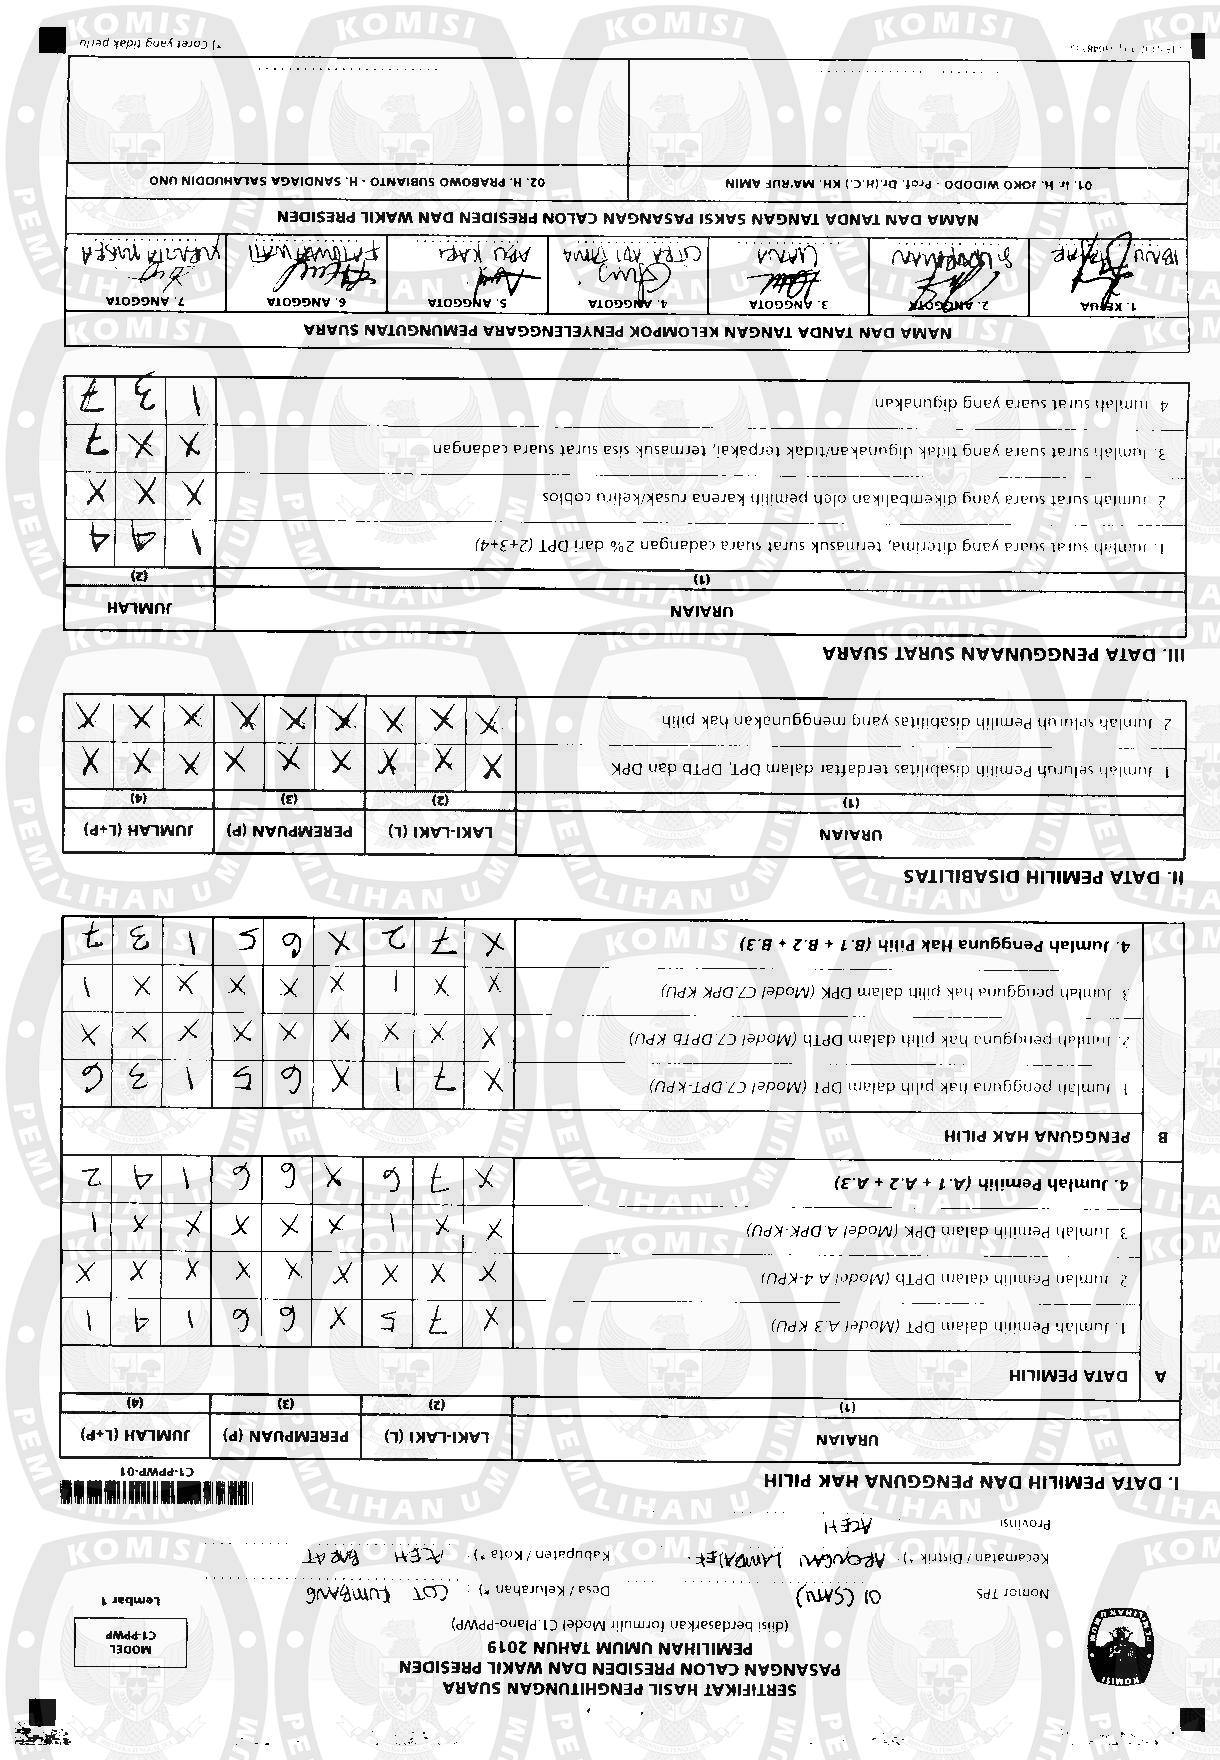 SERTIFIKAT HASIL PENGHITUNGAN SUARA
PASANGAN CALON PRESIDEN DAN WAKIL PRESIDEN
PEMILIHAN UMUM TAHUN 2019
(diisi berdasarkan formulir Model C1.Plano-PPWP)
MODEL
C1-PPWP
Lembar 1
Nomor TPS 01 (SATU) Desa / Kelurahan *) : COT KUMBANG
Kecamatan / Distrik *) : ARONGAN LAMBALEK Kabupaten / Kota *) : ACEH BARAT
Provinsi ACEH
I. DATA PEMILIH DAN PENGGUNA HAK PILIH
C1-PPWP-01
URAIAN LAKI-LAKI (L) PEREMPUAN (P) JUMLAH (L+P)
(1) (2) (3) (4)
A DATA PEMILIH
1. Jumlah Pemilih dalam DPT (Model A.3 KPU) X 7 5 X 6 6 1 4 1
2. Jumlah Pemilih dalam DPTb (Model A 4-KPU) X X X X X X X X X
3. Jumlah Pemilih dalam DPK (Model A DPK-KPU) X X 1 X X X X X 1
4. Jumlah Pemilih (A.1 + A.2 + A.3) X 7 6 X 6 6 1 4 2
B PENGGUNA HAK PILIH
1. Jumlah pengguna hak pilih dalam DPT (Model C7.DPT-KPU) X 7 1 X 6 5 1 3 6
2. Jumlah pengguna hak pilih dalam DPTb (Model C7.DPTb KPU) X X X X X X X X X
3. Jumlah pengguna hak pilih dalam DPK (Model C7.DPK KPU) X X 1 X X X X X 1
4. Jumlah Pengguna Hak Pilih (B.1 + B.2 + B.3) X 7 2 X 6 5 1 3 7
II. DATA PEMILIH DISABILITAS
URAIAN LAKI-LAKI (L) PEREMPUAN (P) JUMLAH (L+P)
(1) (2) (3) (4)
1. Jumlah seluruh Pemilih disabilitas terdaftar dalam DPT, DPTb dan DPK X X X X X X X X X
2. Jumlah seluruh Pemilih disabilitas yang menggunakan hak pilih X X X X X X X X X
III. DATA PENGGUNAAN SURAT SUARA
URAIAN JUMLAH
(1) (2)
1. Jumlah surat suara yang diterima, termasuk surat suara cadangan 2% dari DPT (2+3+4) 1 4 4
2. Jumlah surat suara yang dikembalikan oleh pemilih karena rusak/keliru coblos X X X
3. Jumlah surat suara yang tidak digunakan/tidak terpakai, termasuk sisa surat suara cadangan X X 7
4. Jumlah surat suara yang digunakan 1 3 7
NAMA DAN TANDA TANGAN KELOMPOK PENYELENGGARA PEMUNGUTAN SUARA
1. KETUA 2. ANGGOTA 3. ANGGOTA 4. ANGGOTA 5. ANGGOTA 6. ANGGOTA 7. ANGGOTA
NAMA DAN TANDA TANGAN SAKSI PASANGAN CALON PRESIDEN DAN WAKIL PRESIDEN
01. Ir. H. JOKO WIDODO - Prof. Dr.(H.C.) KH. MA'RUF AMIN 02. H. PRABOWO SUBIANTO - H. SANDIAGA SALAHUDDIN UNO
*) Coret yang tidak perlu